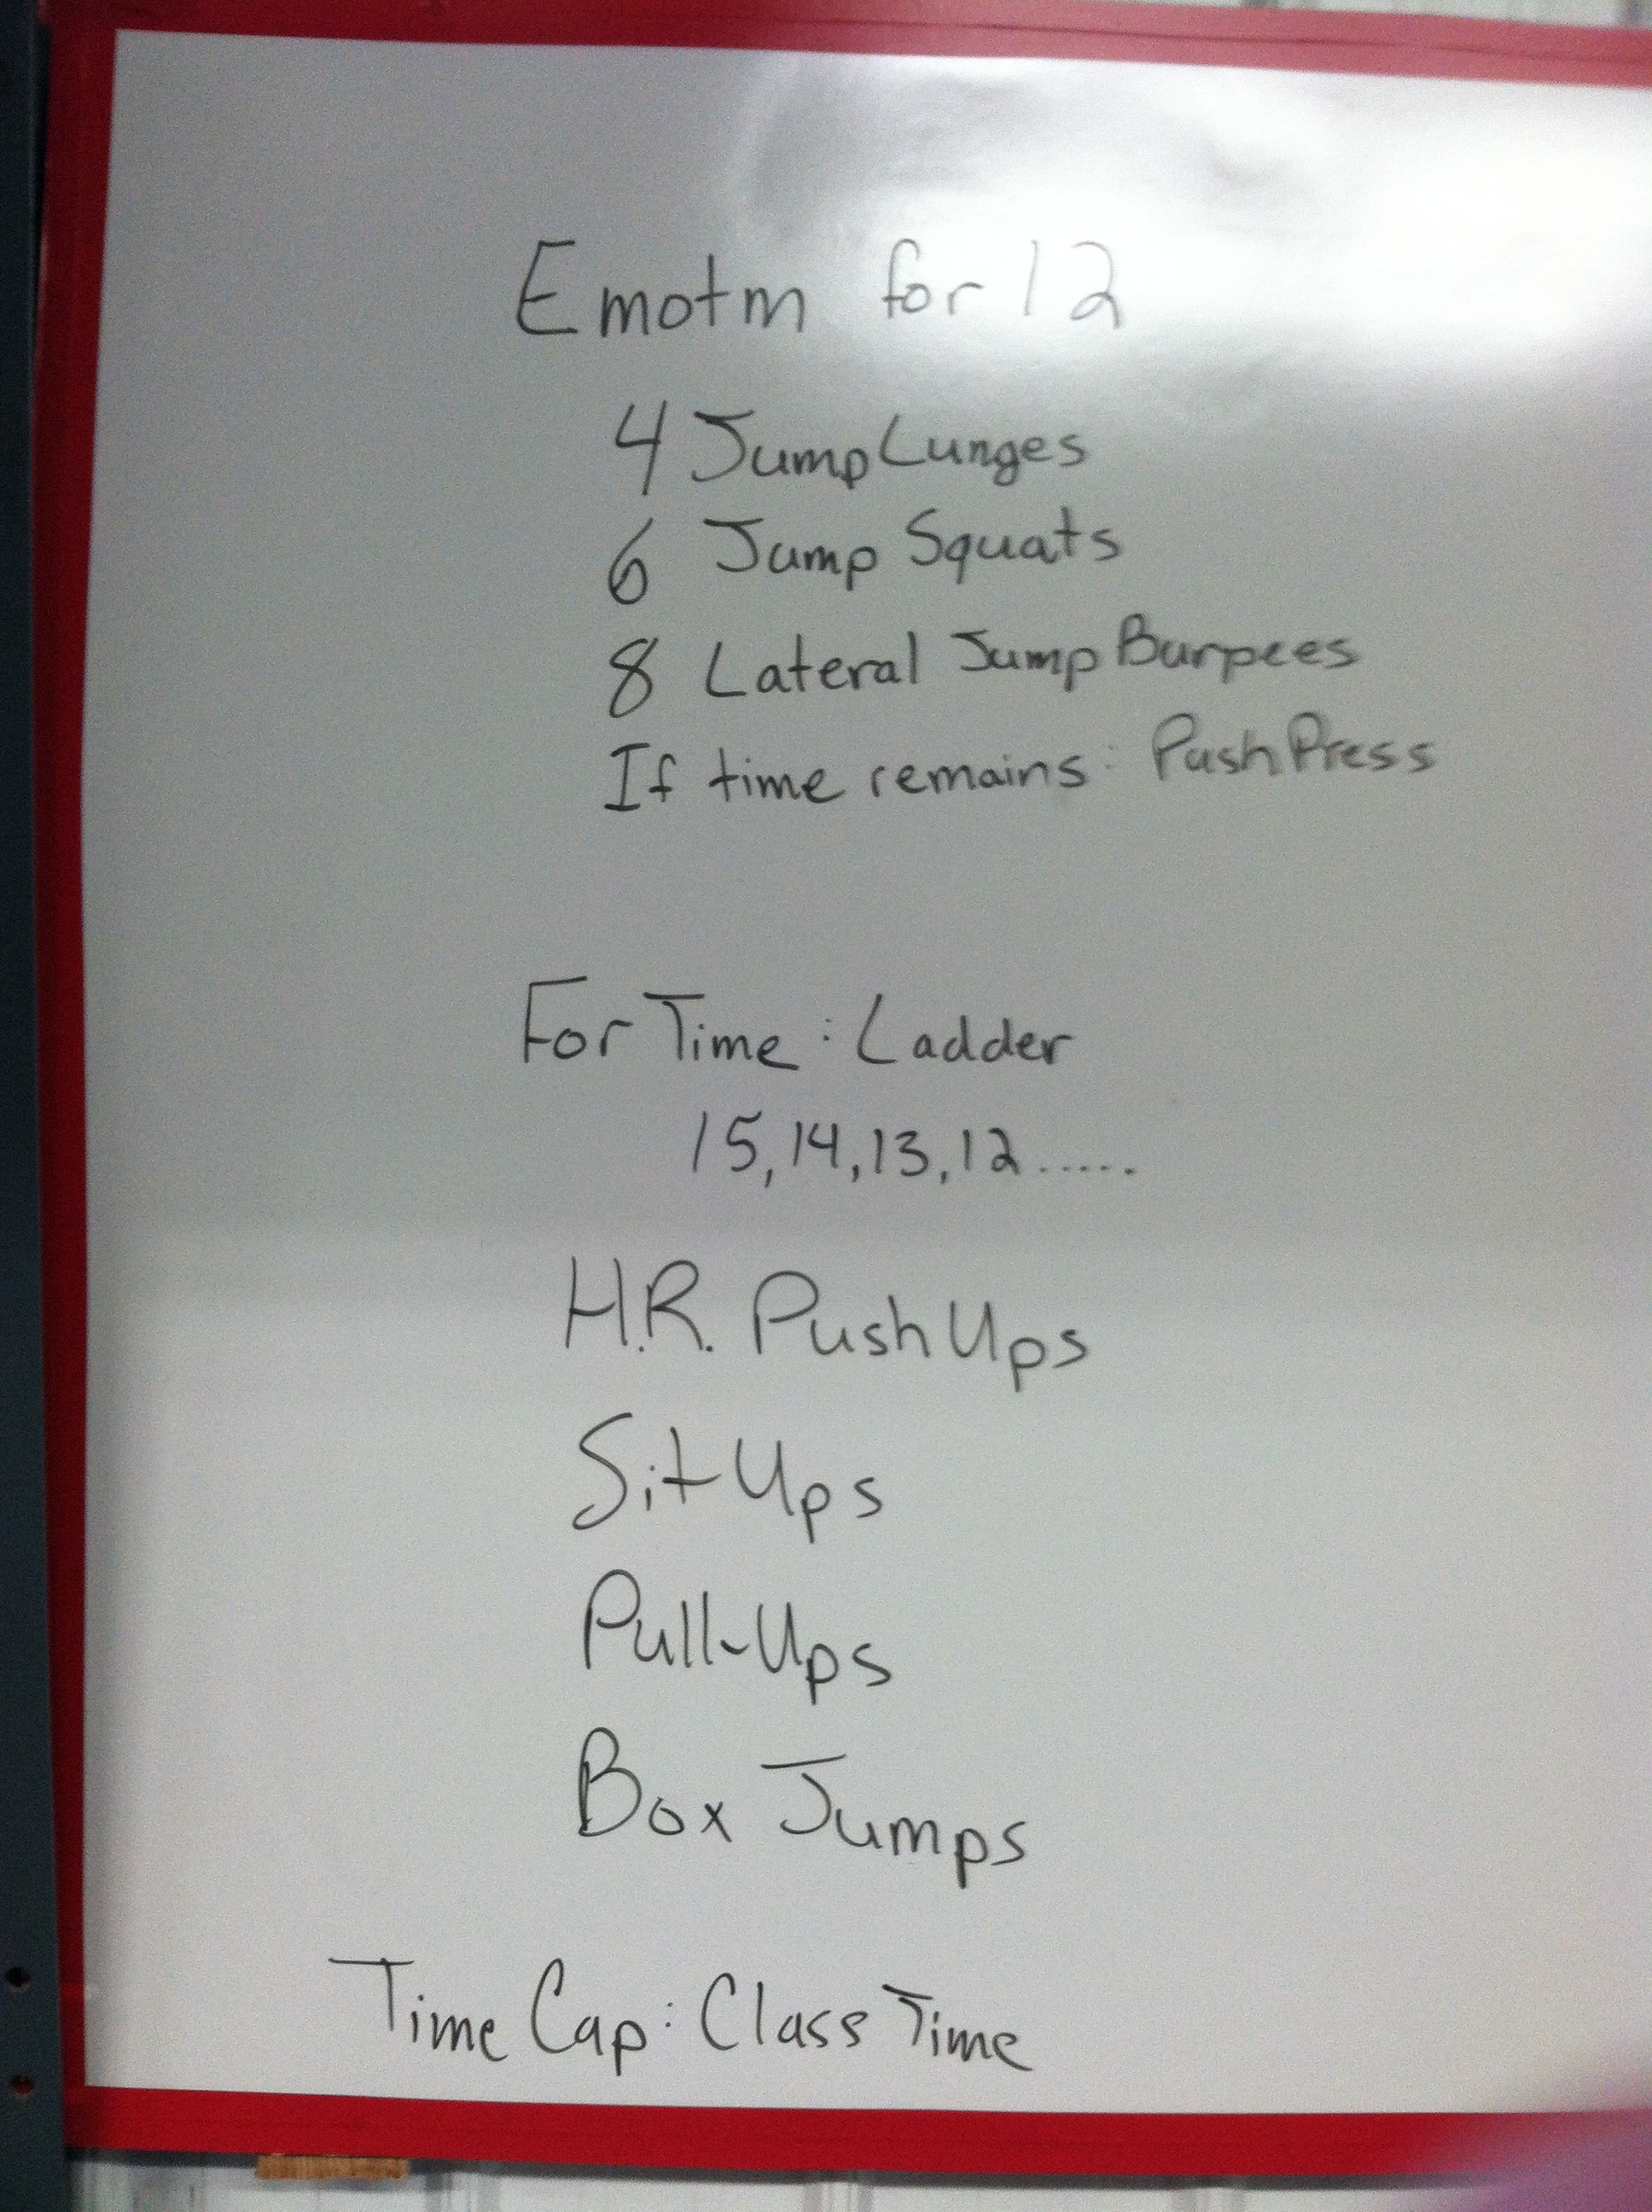 Emotm for 12
4 Jump Lunges
6 Jump Squats
8 Lateral Jump Burpees
If time remains: Push Press
For Time: Ladder
15, 14, 13, 12......
H.R. Push Ups
Sit Ups
Pull-Ups
Box Jumps
Time Cap: Class Time